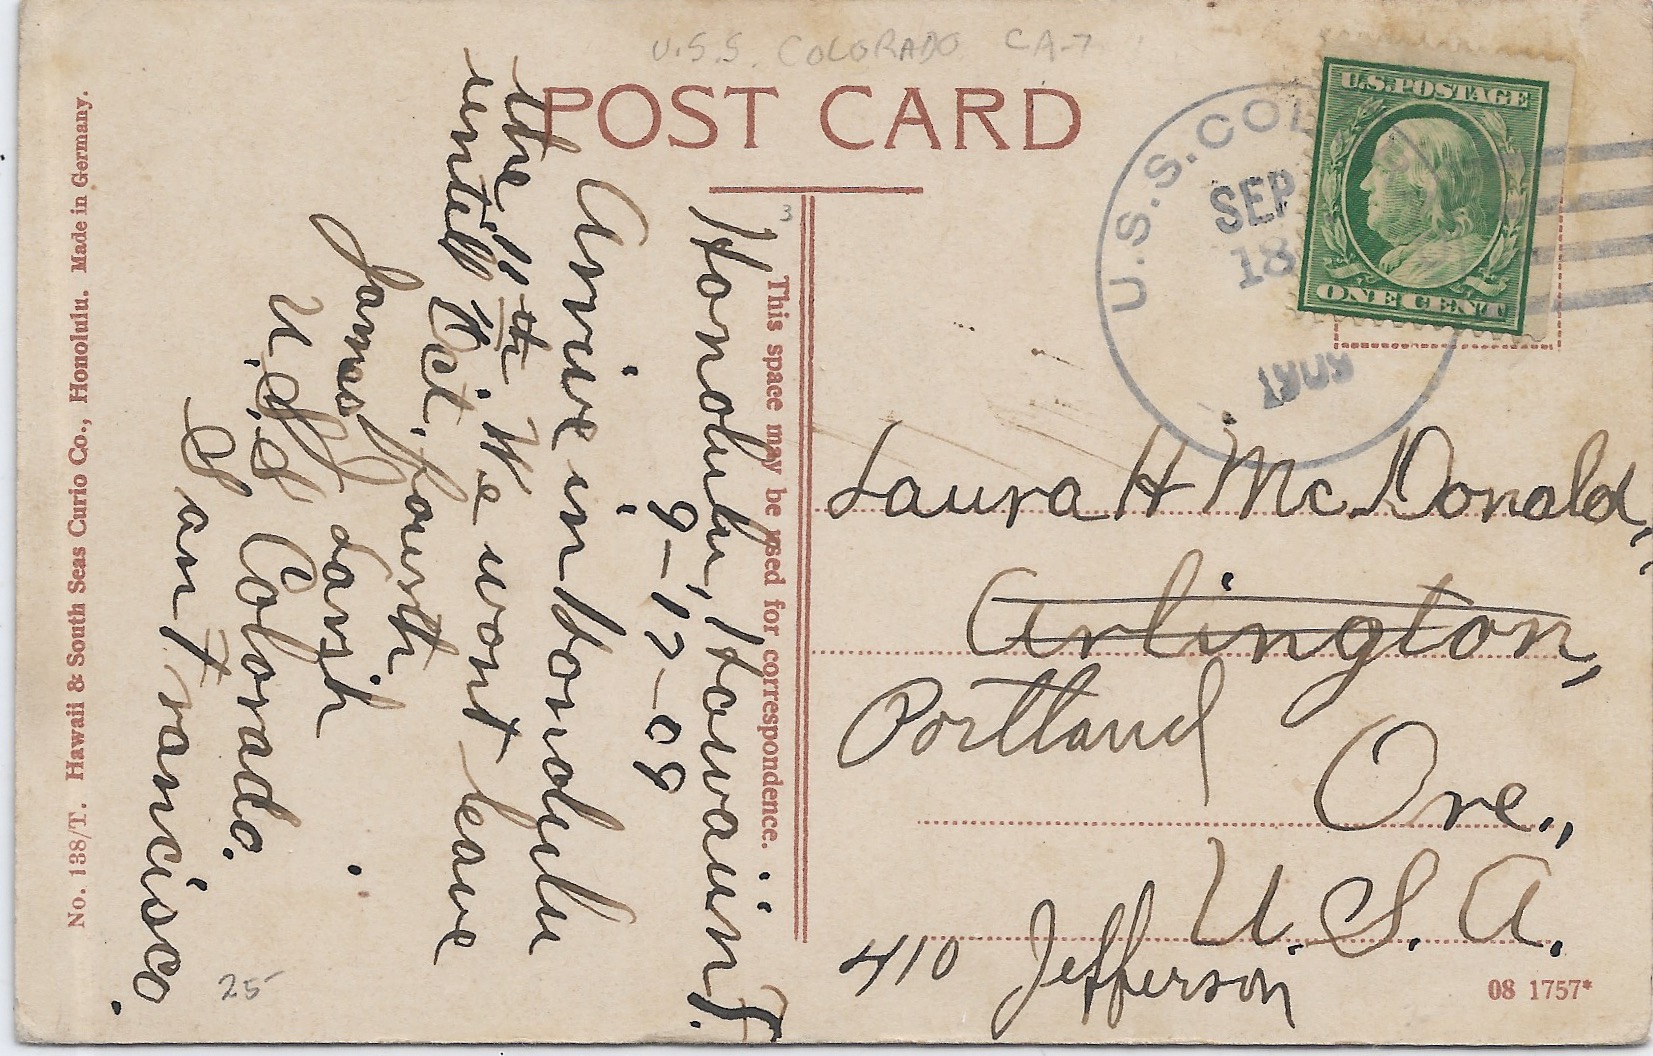 U.S.S. COLORADO CA-7
POST CARD
U.S. POSTAGE
ONE CENT
U.S.S. COL
SEP
18
1909
3
This space may be used for correspondence.
Honolulu, Howaiin T.
9-17-09
Arrive in Honolulu
the 11th. We wont leave
untill Oct, fourth
James J Larsh
U.S.S Colorado.
San Francisco.
Laura H McDonald,
Arlington,
Portland
Ore.,
U.S.A.
410 Jefferson
08 1757*
25-
No. 138/T. Hawaii & South Seas Curio Co., Honolulu. Made in Germany.